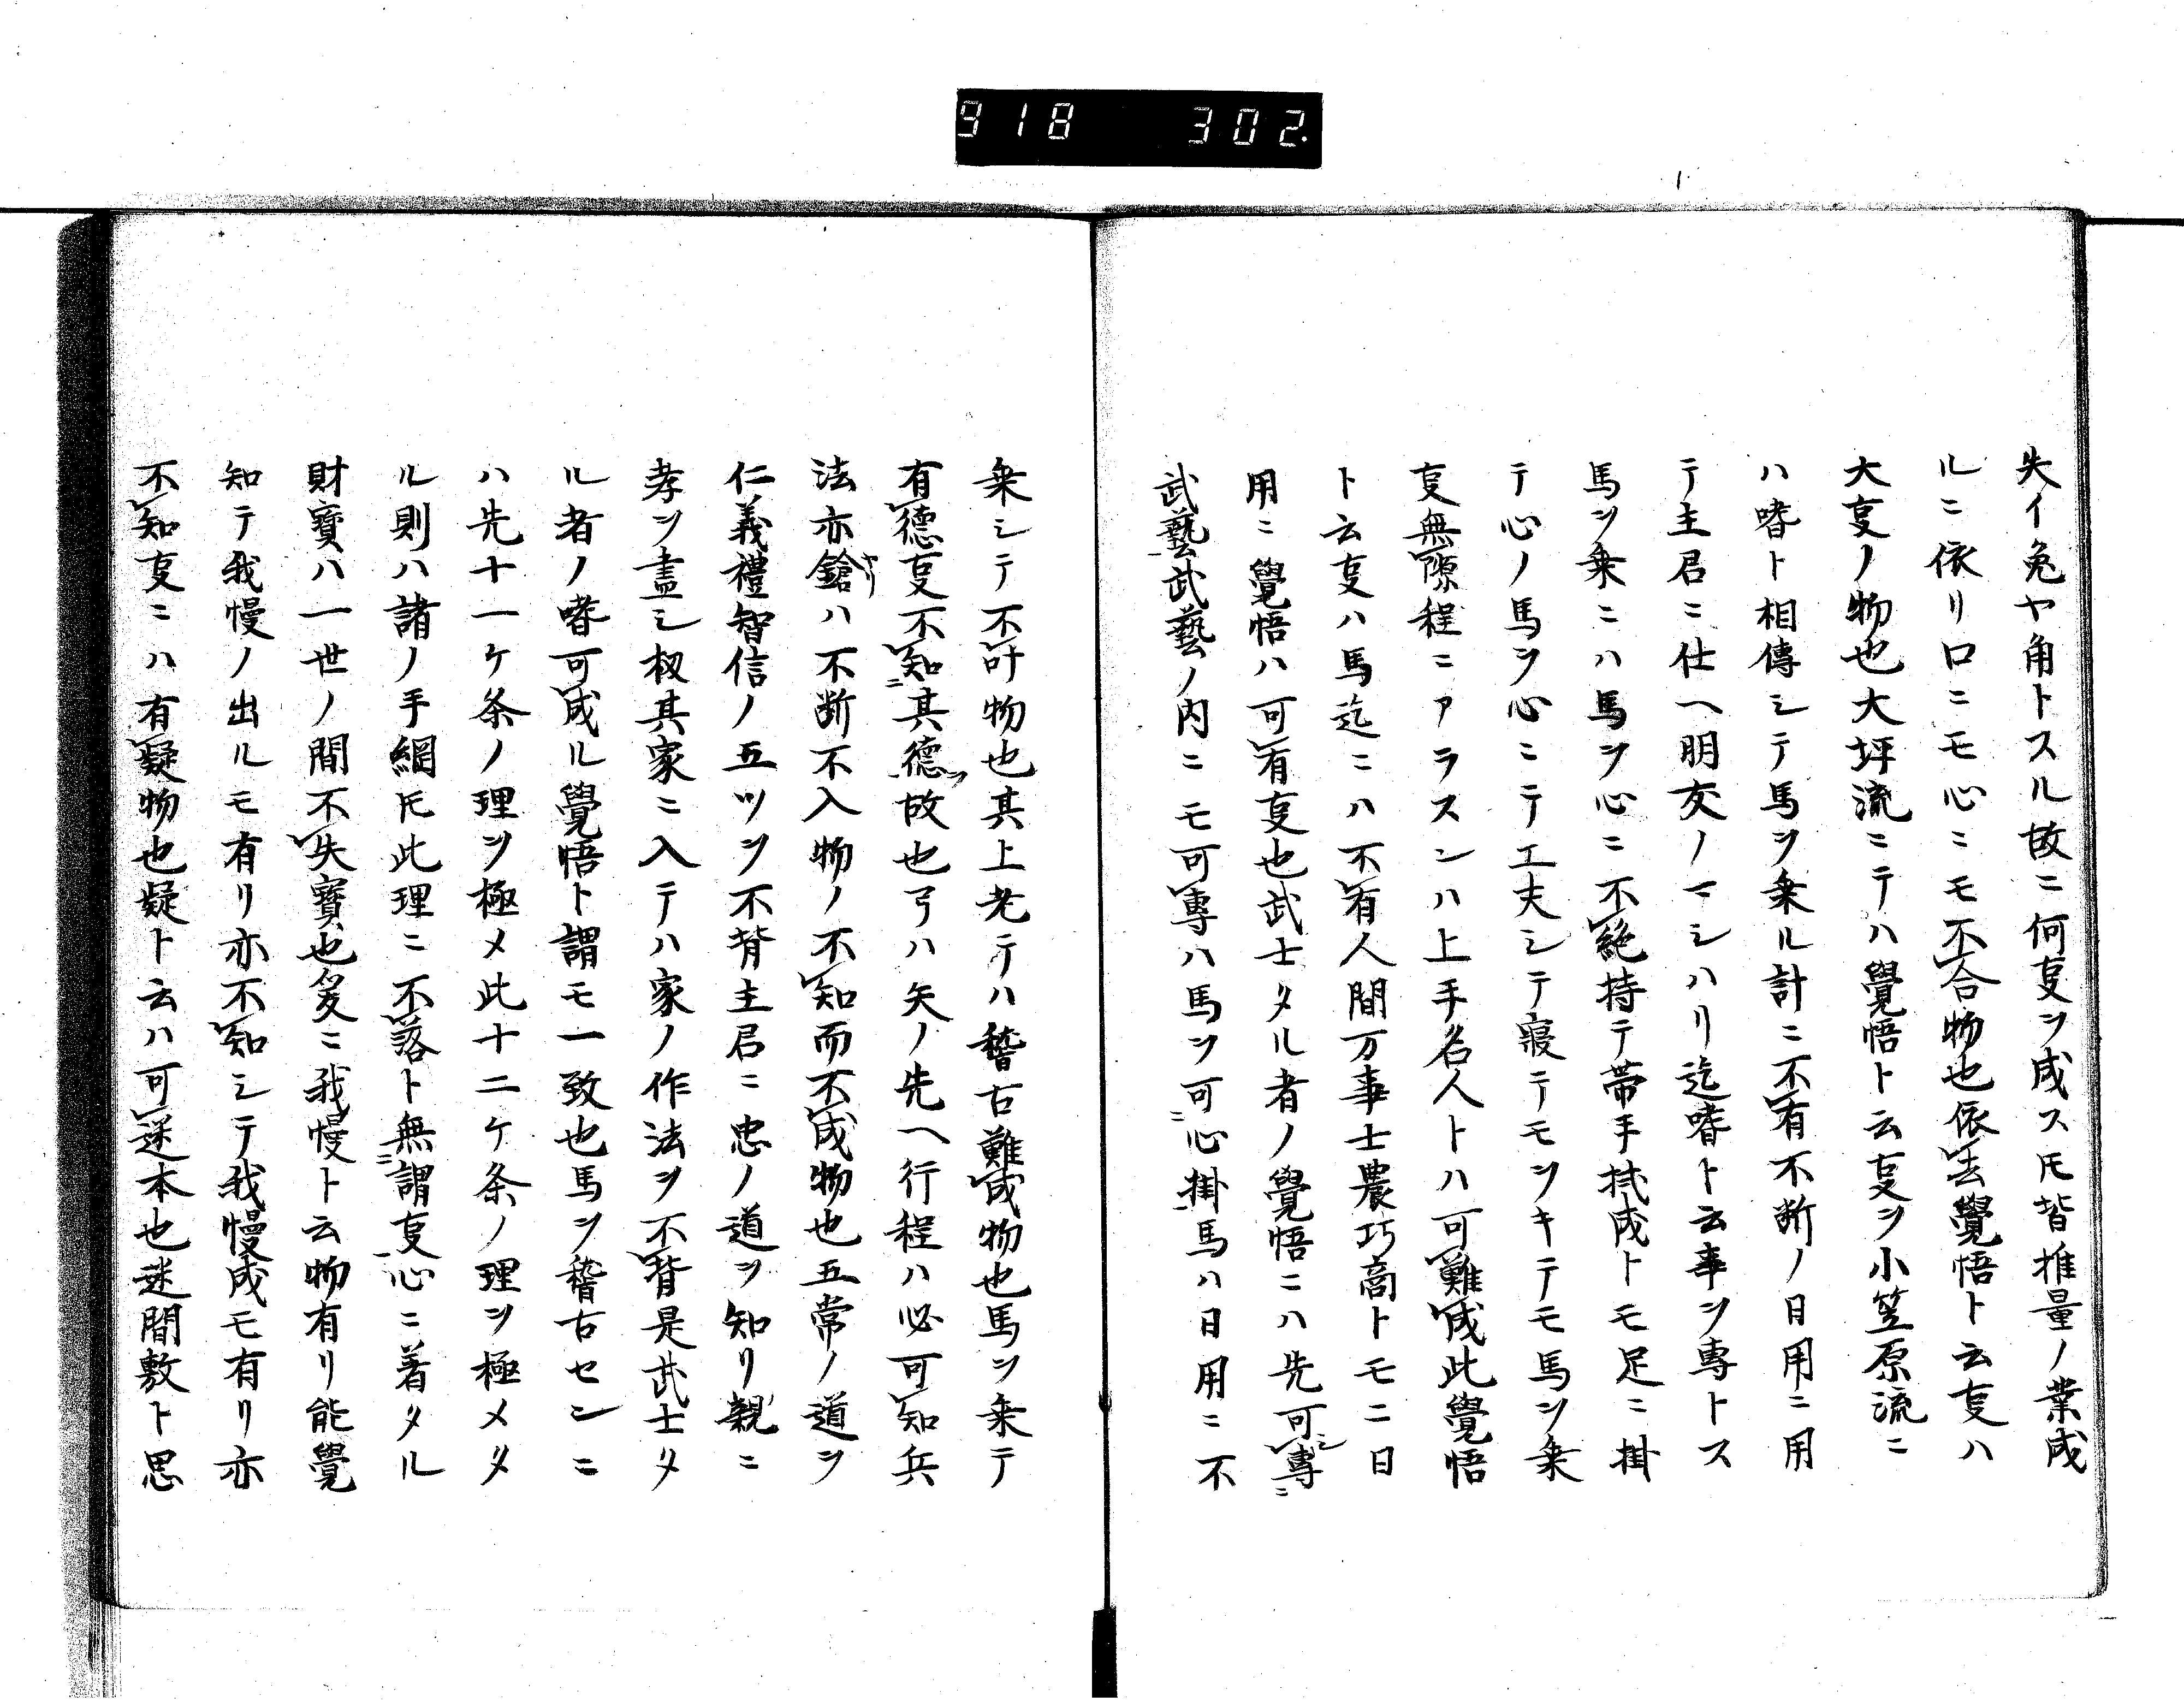 918 302.
失イ兔ヤ角トスル故ニ何㕝ヲ成スㇳモ皆推量ノ業成
ルニ依リ口ニモ心ニモ不合物也依去覺悟ト云㕝ハ
大㕝ノ物也大坪流ニテハ覺悟ト云㕝ヲ小笠原流ニ
ハ嗜ト相傳シテ馬ヲ乗ル計ニ不有不断ノ日用ニ用
テ主君ニ仕ヘ朋友ノマシハリ迄嗜ト云事ヲ專トス
馬ヲ乗ニハ馬ヲ心ニ不絶持テ帯手拭成トモ足ニ掛
テ心ノ馬ヲ心ニテ工夫シテ寢テモヲキテモ馬ヲ乗
㕝無隙程ニアラスンハ上手名人トハ可難成此覺悟
ト云㕝ハ馬迄ニハ不有人間万事士農巧商トモニ日
用ニ覺悟ハ可有㕝也武士タル者ノ覺悟ニハ先可專ニシ
武藝武藝ノ内ニモ可專ハ馬ヲ可心掛馬ハ日用ニ不
乗シテ不叶物也其上老テハ稽古難成物也馬ヲ乗テ
有德㕝不知其德ヲ故也弓ハ矢ノ先ヘ行程ハ必可知兵
法亦鎗ヤリハ不断不入物ノ不知而不成物也五常ノ道ヲ
仁義禮智信ノ五ツヲ不背主君ニ忠ノ道ヲ知リ親ニ
孝ヲ盡シ扨其家ニ入テハ家ノ作法ヲ不背是武士タ
ル者ノ嗜可成ル覺悟ト謂モ一致也馬ヲ稽古センニ
ハ先十一ケ条ノ理ヲ極メ此十二ケ条ノ理ヲ極メタ
ル則ハ諸ノ手綱ㇳモ此理ニ不落ト無謂㕝心ニ著タル
財寶ハ一世ノ間不失寶也爰ニ我慢ト云物有リ能覺
知テ我慢ノ出ルモ有リ亦不知シテ我慢成モ有リ亦
不知㕝ニハ有疑物也疑ト云ハ可迷本也迷間敷ト思